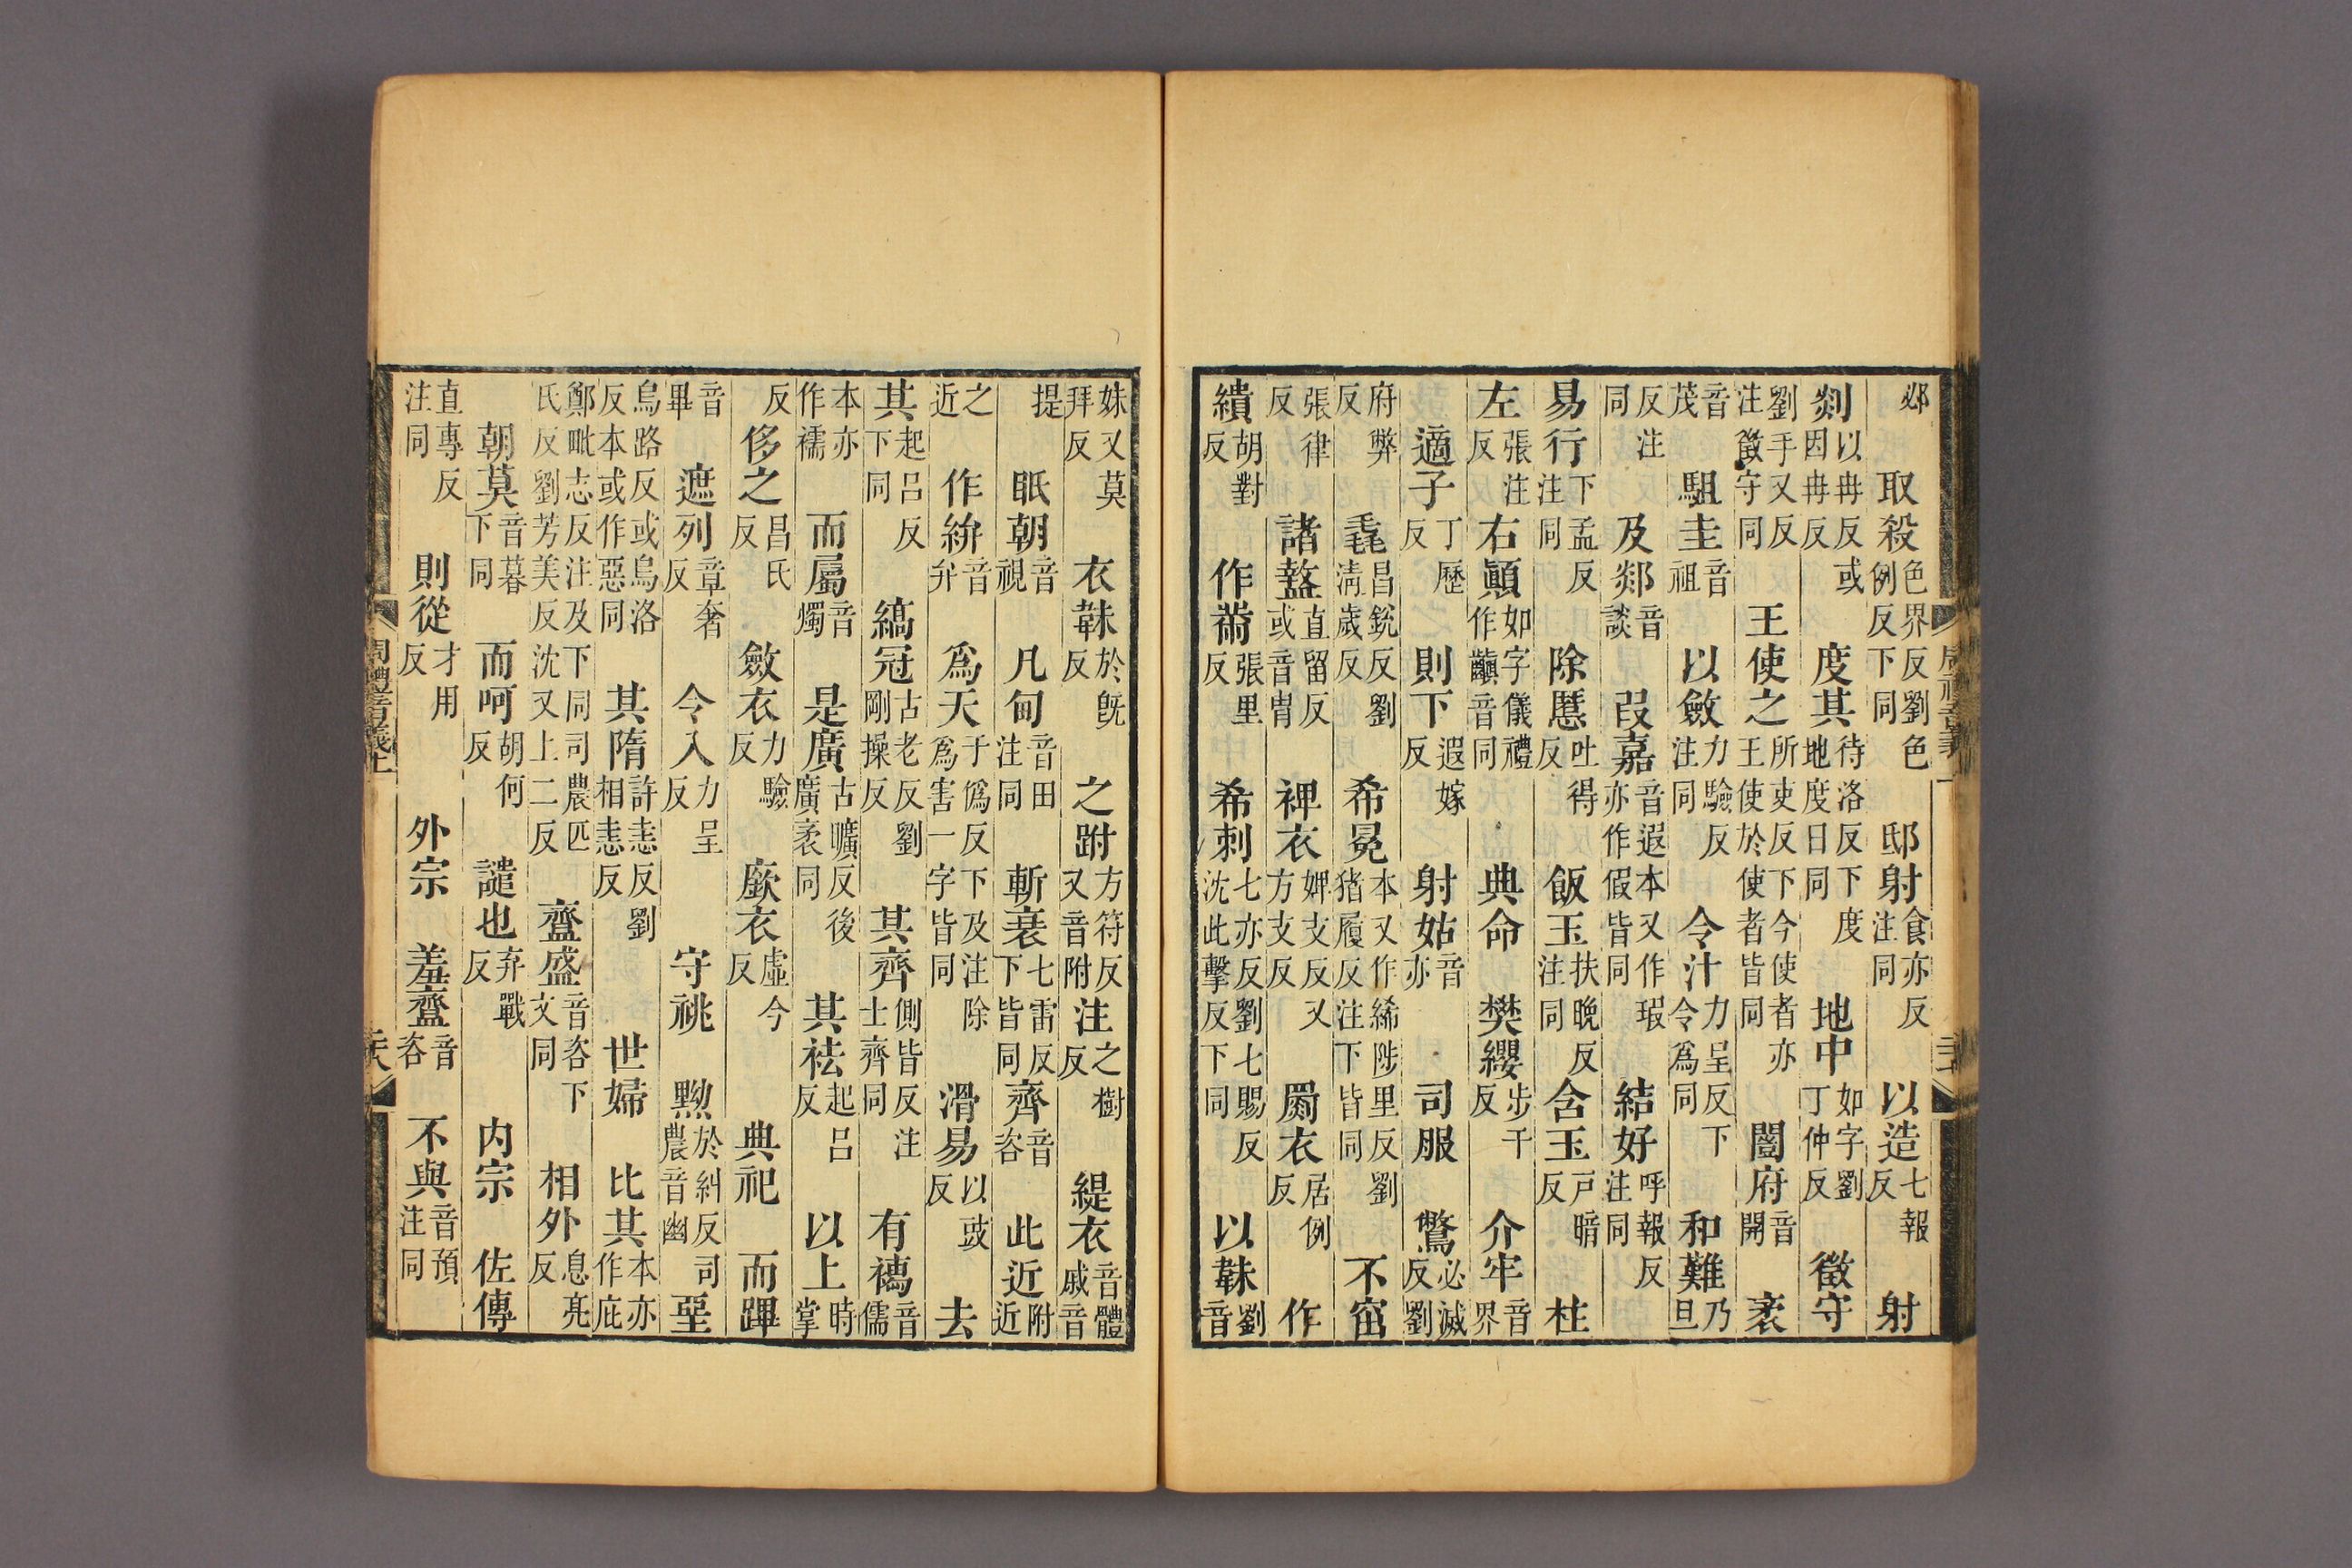 取殺色界反劉色例反下同邸射食亦反注同以造七報反射
剡以冉反或因冉反度其待洛反下度地度日同地中如字劉丁仲反徵守
劉手又反注徵守同王使之所吏反下今使者亦王使於使者皆同闓府音開袤
音茂駔圭音祖以斂力驗反注同令汁力呈反下令爲同和難乃旦
反注同及郯音談叚嘉音遐本又作瑕亦作假皆同結好呼報反注同
易行下孟反注同除慝吐得反飯玉扶晚反注同含玉戸暗反柱
左張注反右顚如字儀禮作齻音同典命樊纓步干反介牢音界
適子丁歷反則下遐嫁反射姑音亦司服鷩必滅反劉
府弊反毳昌銳反劉清歲反希冕本又作絺陟里反劉猪履反注下皆同不窋
張律反諸盩直留反或音胄裨衣婢支反又方支反罽衣居例反作
繢胡對反作黹張里反希刺七亦反劉七賜反沈此擊反下同以韎劉音
妹又莫拜反衣韎於旣反之跗方符反又音附注之樹反緹衣音體戚音
提眂朝音視凡甸音田注同斬衰七雷反下皆同齊音咨此近附近
之近作絣音弁爲天于僞反下及注除爲害一字皆同滑易以豉反去
其起呂反下同縞冠古老反劉剛操反其齊側皆反注士齊同有音儒
本亦作襦而屬音燭是廣古曠反後廣袤同其袪起呂反以上時掌
反侈之昌氏反斂衣力驗反廞衣虛今反典祀而蹕
音畢遮列章奢反令入力呈反守祧黝於糾反司農音幽堊
烏路反或烏洛反本或作惡同其隋許恚反劉相恚反世婦比其本亦作庇
鄭毗志反注及下同司農匹氏反劉芳美反沈又上二反齍盛音咨下文同相外息亮反
朝莫音暮下同而呵胡何反譴也弃戰反内宗佐傳
直專反注同則從才用反外宗羞齍音咨不與音預注同
周禮音義上